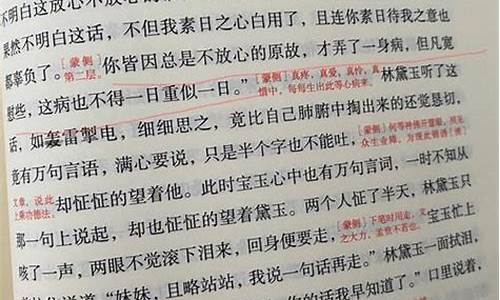 不明白这放心不放心的
果然不明白这话，不但我素日之心白用了，且连你素日待我之意也
都辜负了。[蒙侧]第二层。你皆因总是不放心的原故，才弄了一身病，但凡宽
慰些，这病也不得一日重似一日。”[蒙侧]真疼，真爱，真怜，真惜中，每每生出此等心病来。林黛玉听了这
话，如轰雷掣电，细细思之，竟比自己肺腑中掏出来的还觉恳切，
竟有万句言语，满心要说，只是半个字也不能吐，[蒙侧]何等神佛开慧眼，照见众生业障，为现此锦绣
文章，说此上乘功德法。却怔怔的望着他。此时宝玉心中也有万句言词，一时不知从
那一句上说起，却也怔怔的望着黛玉。两个人怔了半天，林黛玉只
咳了一声，两眼不觉滚下泪来，回身便要走，[蒙侧]下笔时用走，文之大力，孟贲不若也。宝玉忙上
“妹妹，且略站站，我说一句话再走。”林黛玉一面拭泪，
你的话我早知道了。”口里说着，